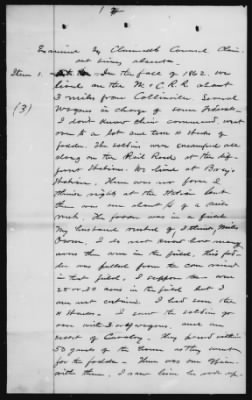 Examined by Claimants Counsel Claim-
ant being absent.
Item 1. In the fall of 1862. we
(3) lived on the M & C. R R about
3 miles from Collierville. Several
Wagons in charge of some Federals
I don't know their command, went
over to a lot and tore 4 Stacks of
fodder. The soldiers were encamped all
along on the Rail Road at the dif-
ferent Stations. We lived at Bray's
Station. There was no force
right at the Station but
there was one about ½ of a mile
. The fodder was in a field.
My husband rented of, I think, Miles
Owen, I do not know how many
acres there were in the field, this fod-
der was pulled from the corn raised
in that field. I suppose there were
25 or 30 acres in the field but I
am not certain. I had seen the
4 Stacks. I saw the soldiers go
over with 3 or 4 wagons, and an
escort of Cavalry. They passed within
50 yards of the house as they went
for the fodder. There was one officer
with them. I saw him he rode up